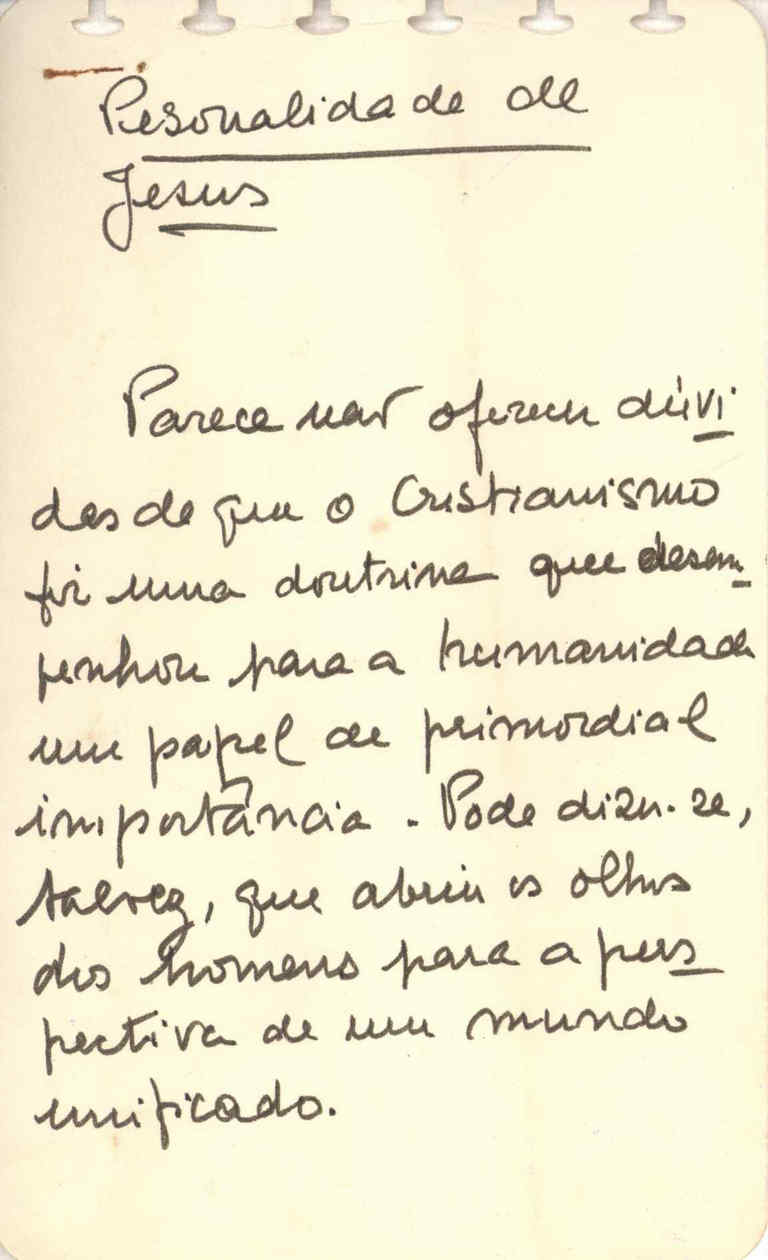 Pesonalidade de
Jesus
Parece não oferecer dúvi
das de que o Cristianismo
foi uma doutrina que desem-
penhou para a humanidade
um papel de primordial
importância. Pode dizer-se,
talvez, que abriu os olhos
dos homens para a pers-
pectiva de um mundo
unificado.